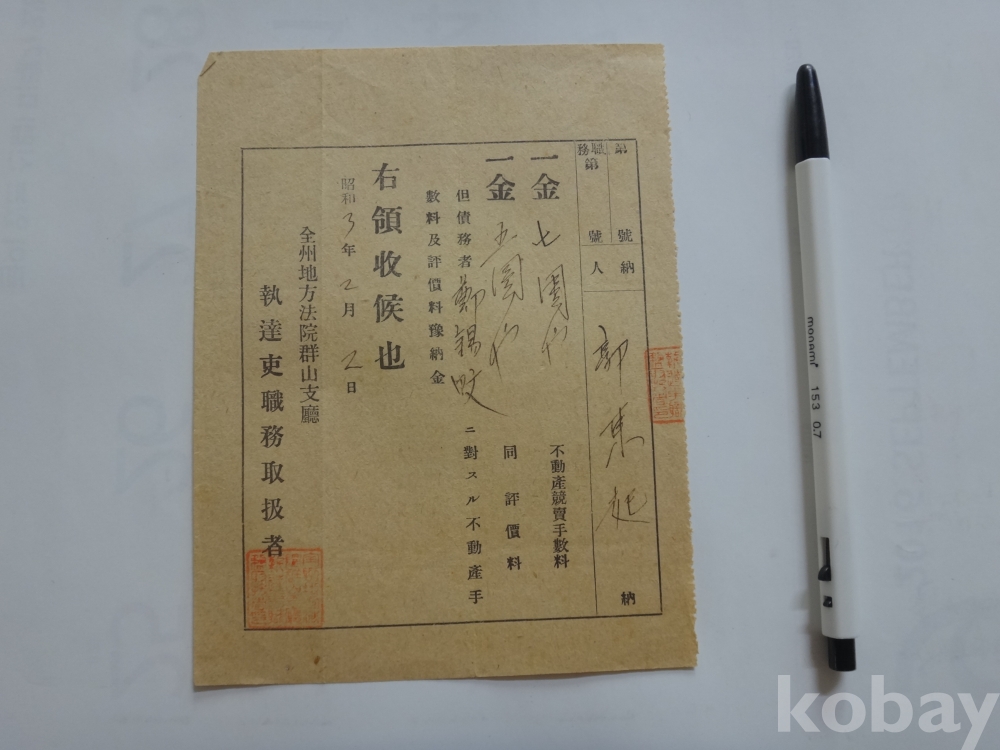 第 號
職務第 號
納人 郭東起 納
一金 七圓也 不動產競賣手數料
一金 五圓也 同評價料
但債務者鄭錫 ニ對スル不動產手
數料及評價料豫納金
右領收候也
昭和3年2月2日
全州地方法院群山支廳
執達吏職務取扱者
monami 153 0.7
kobay